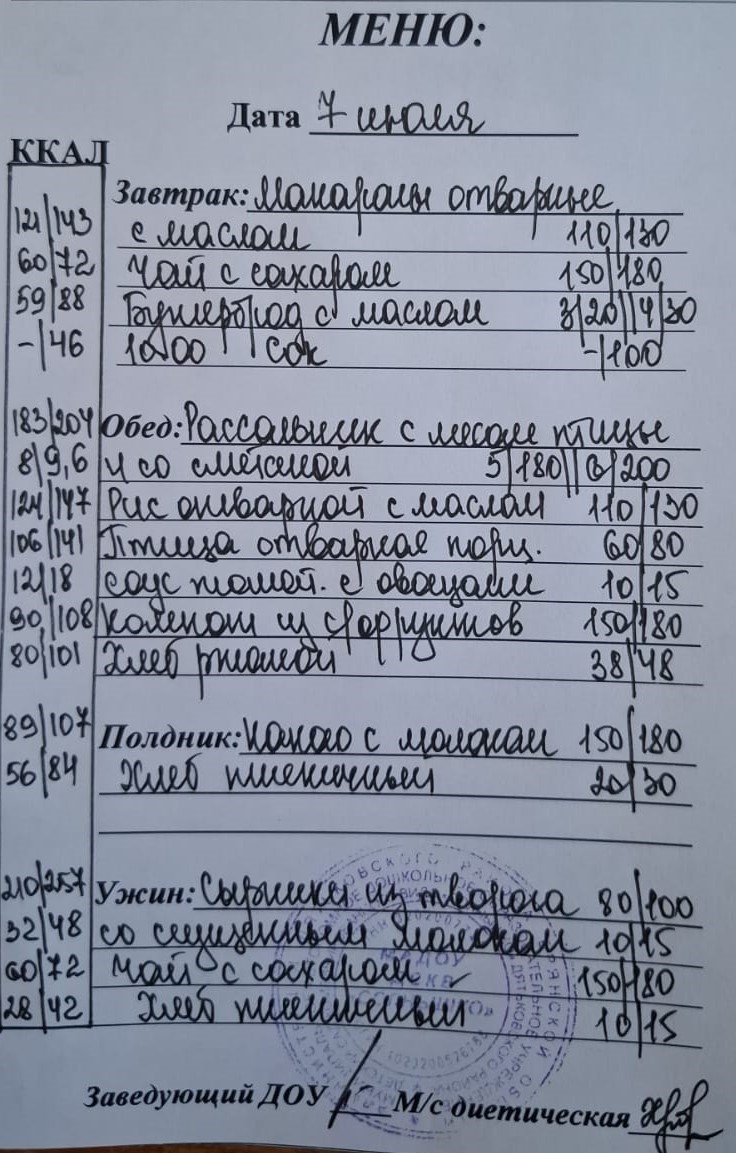 МЕНЮ:
Дата 7 июля
ККАЛ
Завтрак: Макароны отварные
121/143 с маслом 110/130
60/72 Чай с сахаром 150/180
59/88 Бутерброд с маслом 3/20//4/30
-/46 10.00 Сок -/100
183/204 Обед: Рассольник с мясом птицы
8/9,6 и со сметаной 5/180//6/200
124/147 Рис отварной с маслом 110/130
106/141 Птица отварная порц. 60/80
12/18 соус томат. с овощами 10/15
90/108 Компот из с/фруктов 150/180
80/101 Хлеб ржаной 38/48
89/107 Полдник: Какао с молоком 150/180
56/84 Хлеб пшеничный 20/30
210/257 Ужин: Сырники из творога 80/100
32/48 со сгущенным молоком 10/15
60/72 Чай с сахаром 150/180
28/42 Хлеб пшеничный 10/15
Заведующий ДОУ М/с диетическая